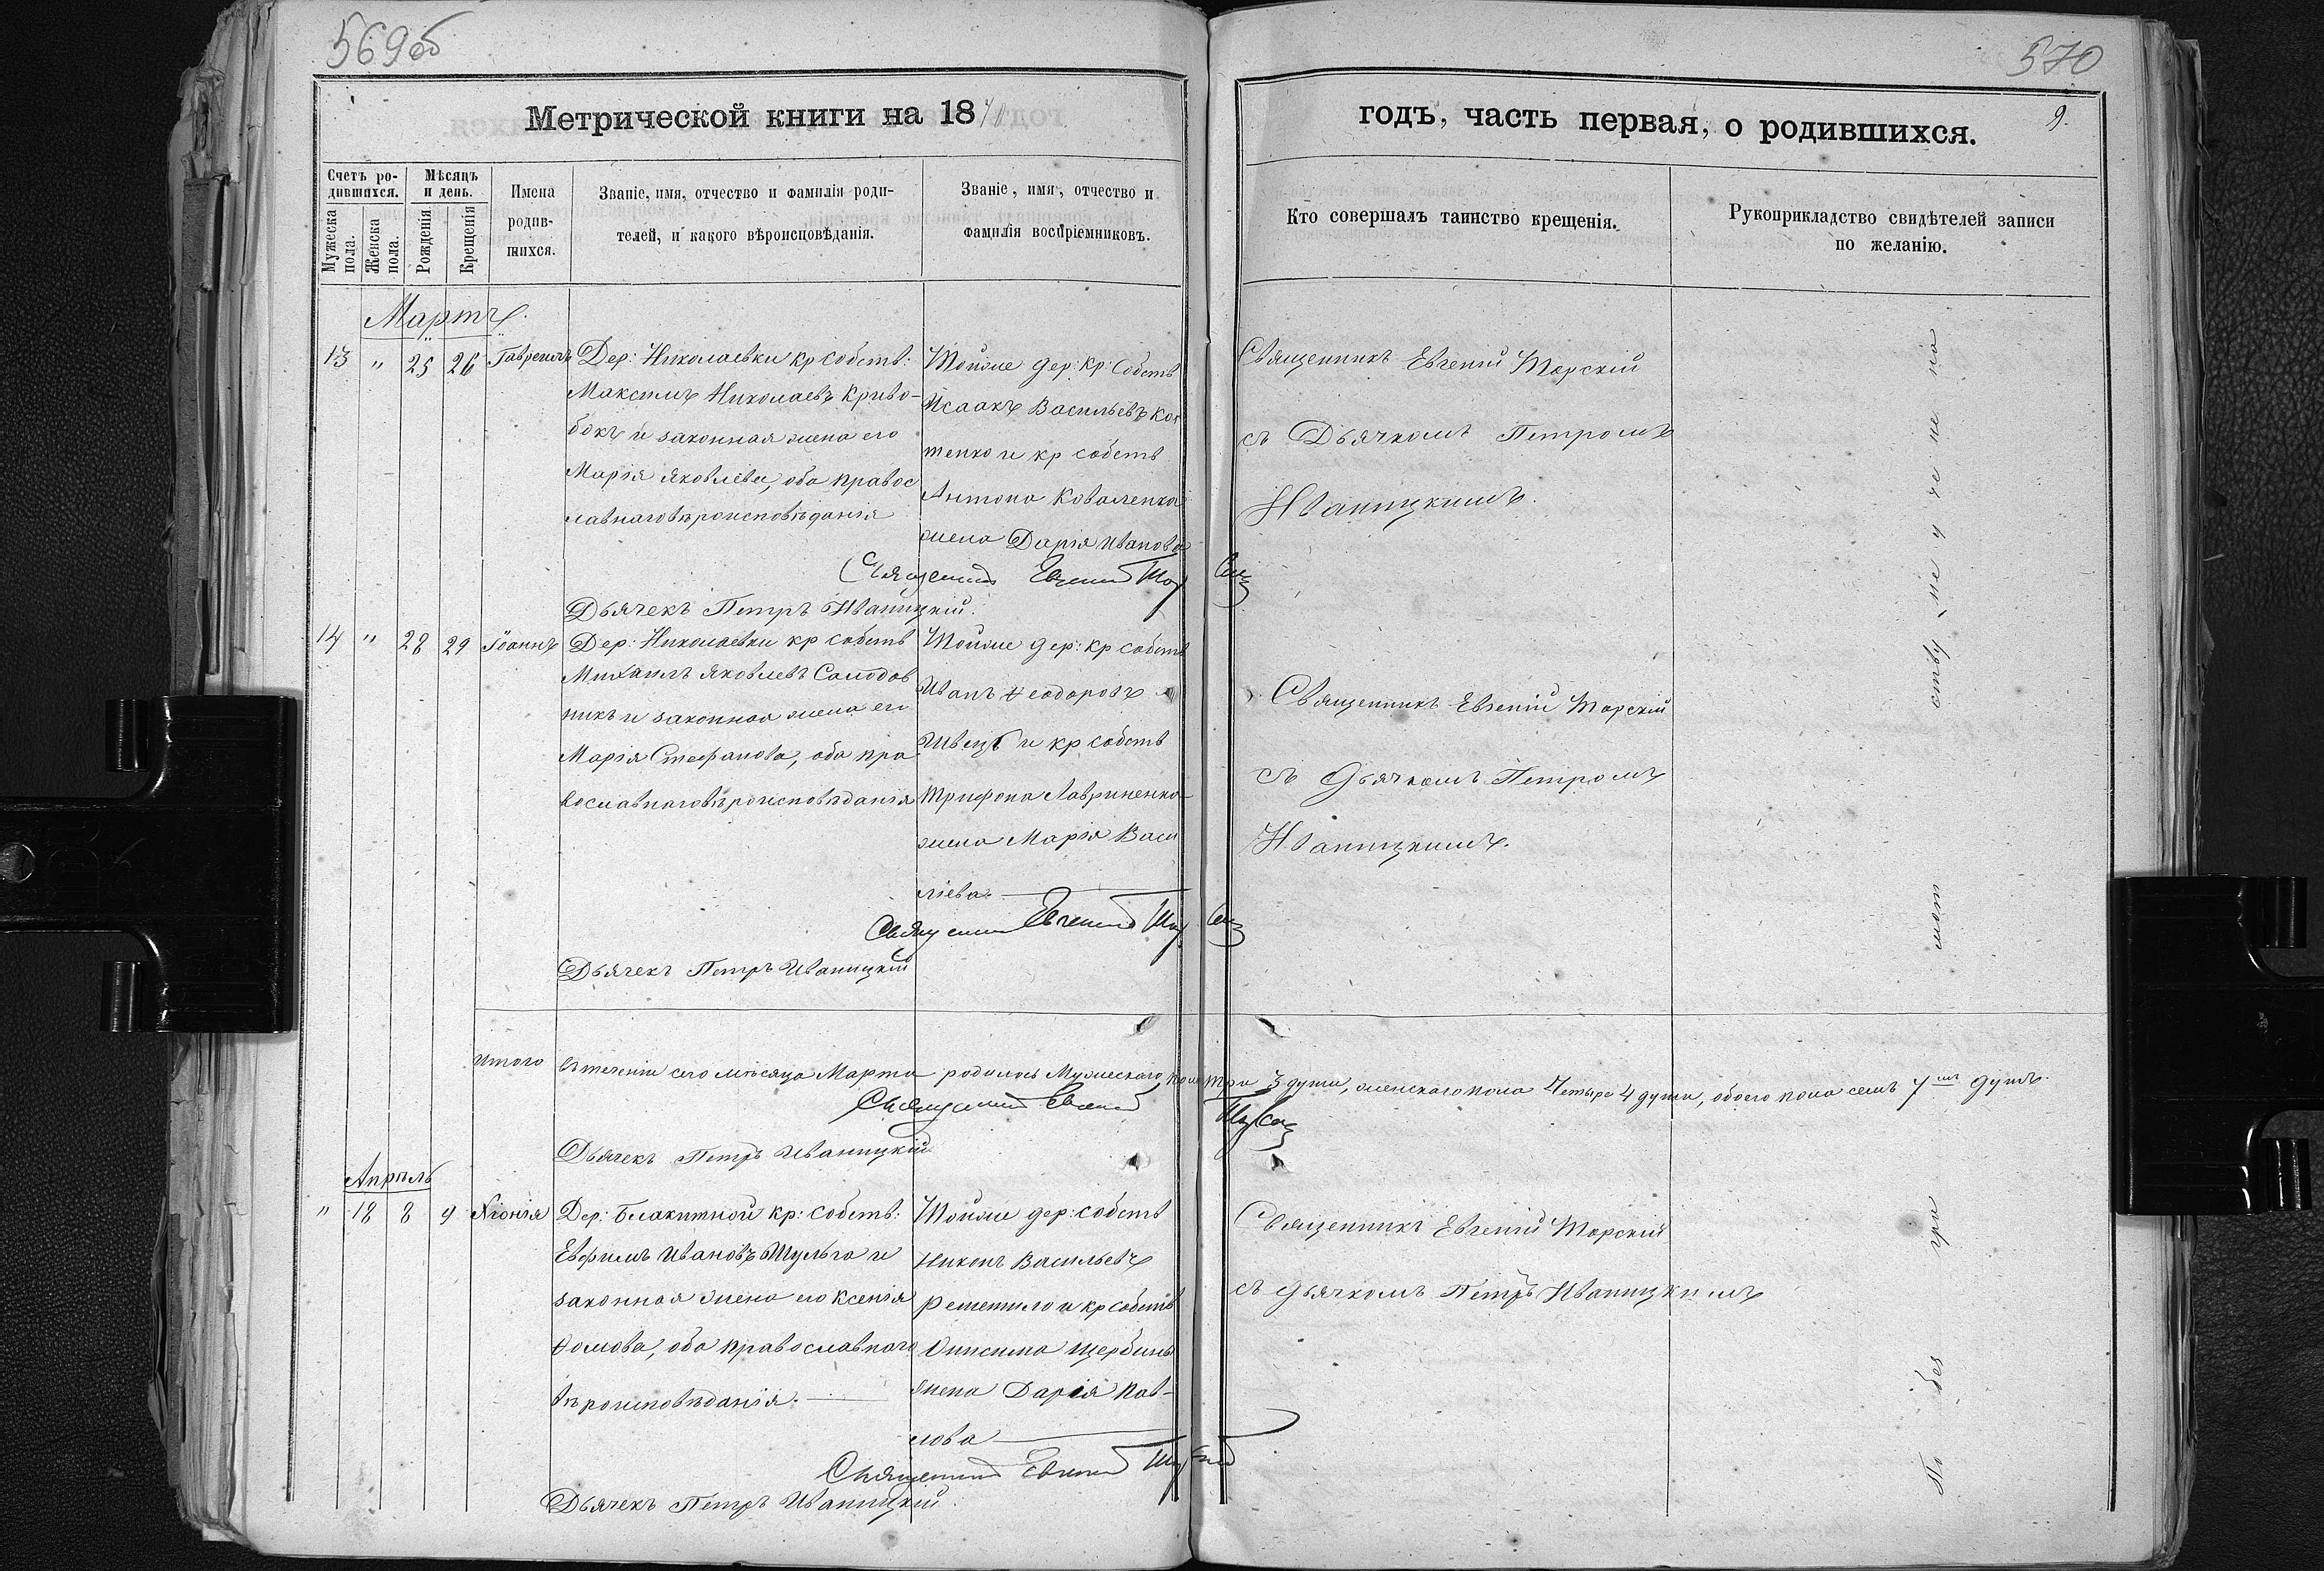 569 об
570
9.
Метрической книги на 18
годъ, часть первая, о родившихся.
Счетъ ро-
дившихся.
Мужеска
пола.
Женска
пола.
Мѣсяцъ
и день.
Рожденія.
Крещенія
Имена
родив-
шихся.
Званіе, имя, отчество и фамилія роди-
телей, и какого вѣроисповѣданія.
Званіе, имя, отчество и
фамилія воспріемниковъ.
Кто совершалъ таинство крещенія.
Рукоприкладство свидѣтелей записи
по желанію.
Мартъ.
13 " 25 26 Гавреилъ
Дер: Николаевки кр собств:
Максимъ Николаевъ Криво-
бокъ и законная жена его
Марія Яковлева, оба правос
лавнаго вѣроисповѣданія
Тойже дер: кр: собств
Исаакъ Васильевъ
тенко и кр собств
Антона Коваленка
жена Дарія Иванова
Священникъ Евгеній
Дьячекъ Петръ Иваницкій.
Священникъ Евгеній Торскій
съ Дьячкомъ Петромъ
Иваницкимъ.
14 " 28 29 Іоаннъ
Дер: Николаевки кр собств
Михаилъ Яковлевъ Солодов
никъ и законная жена его
Марія Стефанова, оба пра
вославнаго вѣроисповѣданія
Тойже дер: кр собств
Иванъ Ѳеодоровъ
Швецъ и кр собств
Трифона Лавриненка
жена Марія Васи
ліева.
Священникъ Евгеній
Дьячекъ Петръ Иваницкій
Священникъ Евгеній Торскій
съ дьячкомъ Петромъ
Иваницкимъ.
Итого въ теченіи сего мѣсяца Марта родилось Мужескаго пола три 3 души, женскаго пола Четыре 4 души, обоего пола семь 7мь душъ.
Священникъ Евгеній
Дьячекъ Петръ Иваницкій
Апрѣль
" 18 8 9 Хіонія
Дер: Блакитной кр: собств:
Евфимъ Ивановъ Шульга и
законная жена его Ксенія
Ѳомова, оба православнаго
вѣроисповѣданія.
Тойже дер: собств
Никонъ Васильевъ
Решетило и кр собств
Онисима Щербины
жена Дарія Пав-
лова
Священникъ Евгеній
Дьячекъ Петръ Иваницкій.
Священникъ Евгеній Торскій
съ дьячкомъ Петръ Иваницкимъ